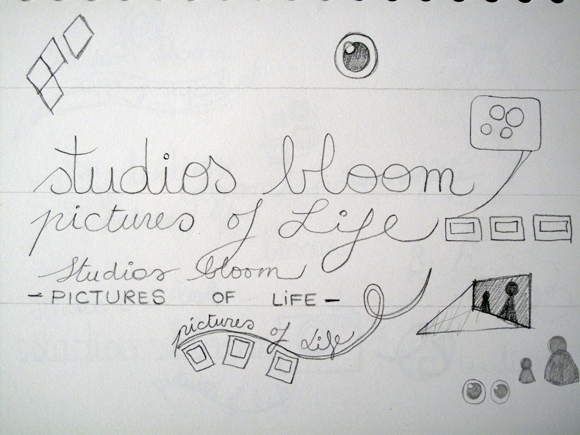 studios bloom
pictures of Life
Studios bloom
- PICTURES OF LiFE -
pictures of Life